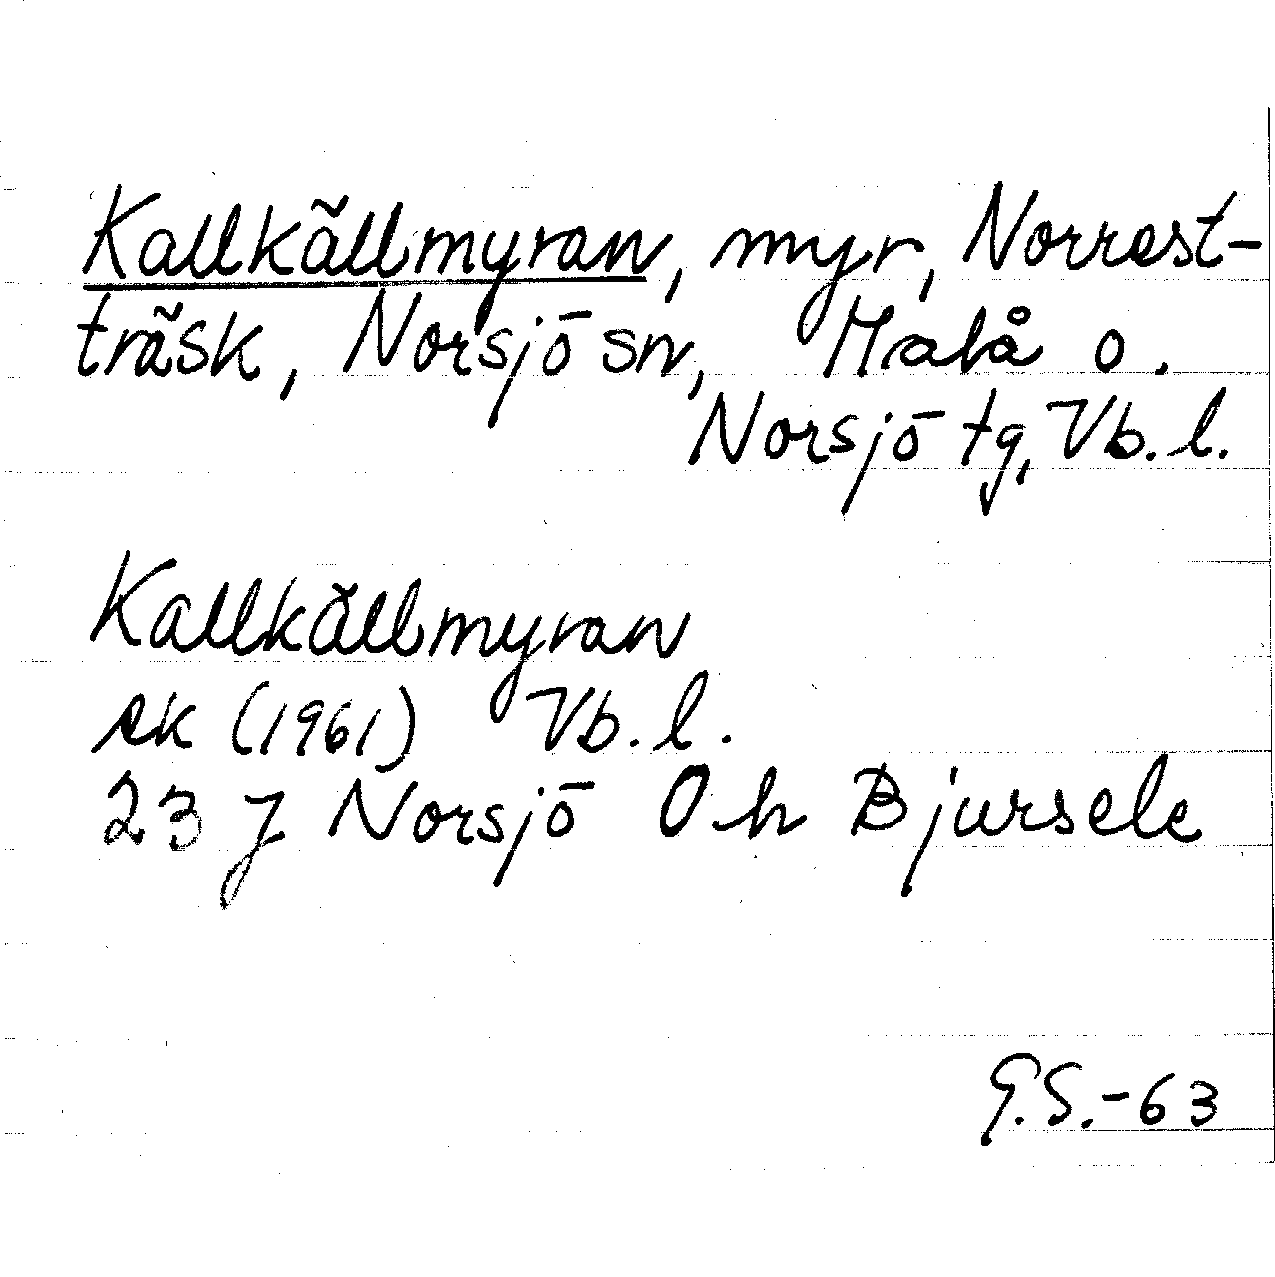 Kallkällmyran, myr, Norrest-
träsk, Norsjö sn, Malå o.
Norsjö tg, Vb. l.
Kallkällmyran
ek (1961) Vb. l.
23 J Norsjö 0 h Bjursele
G.S.-63